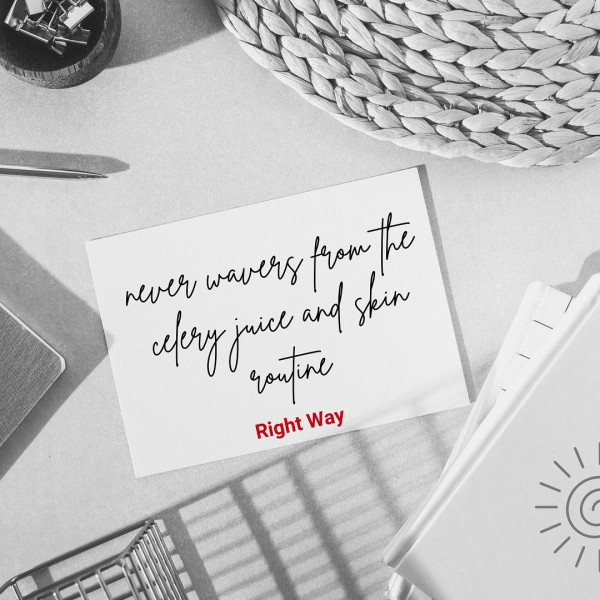 never wavers from the
celery juice and skin
routine
Right Way